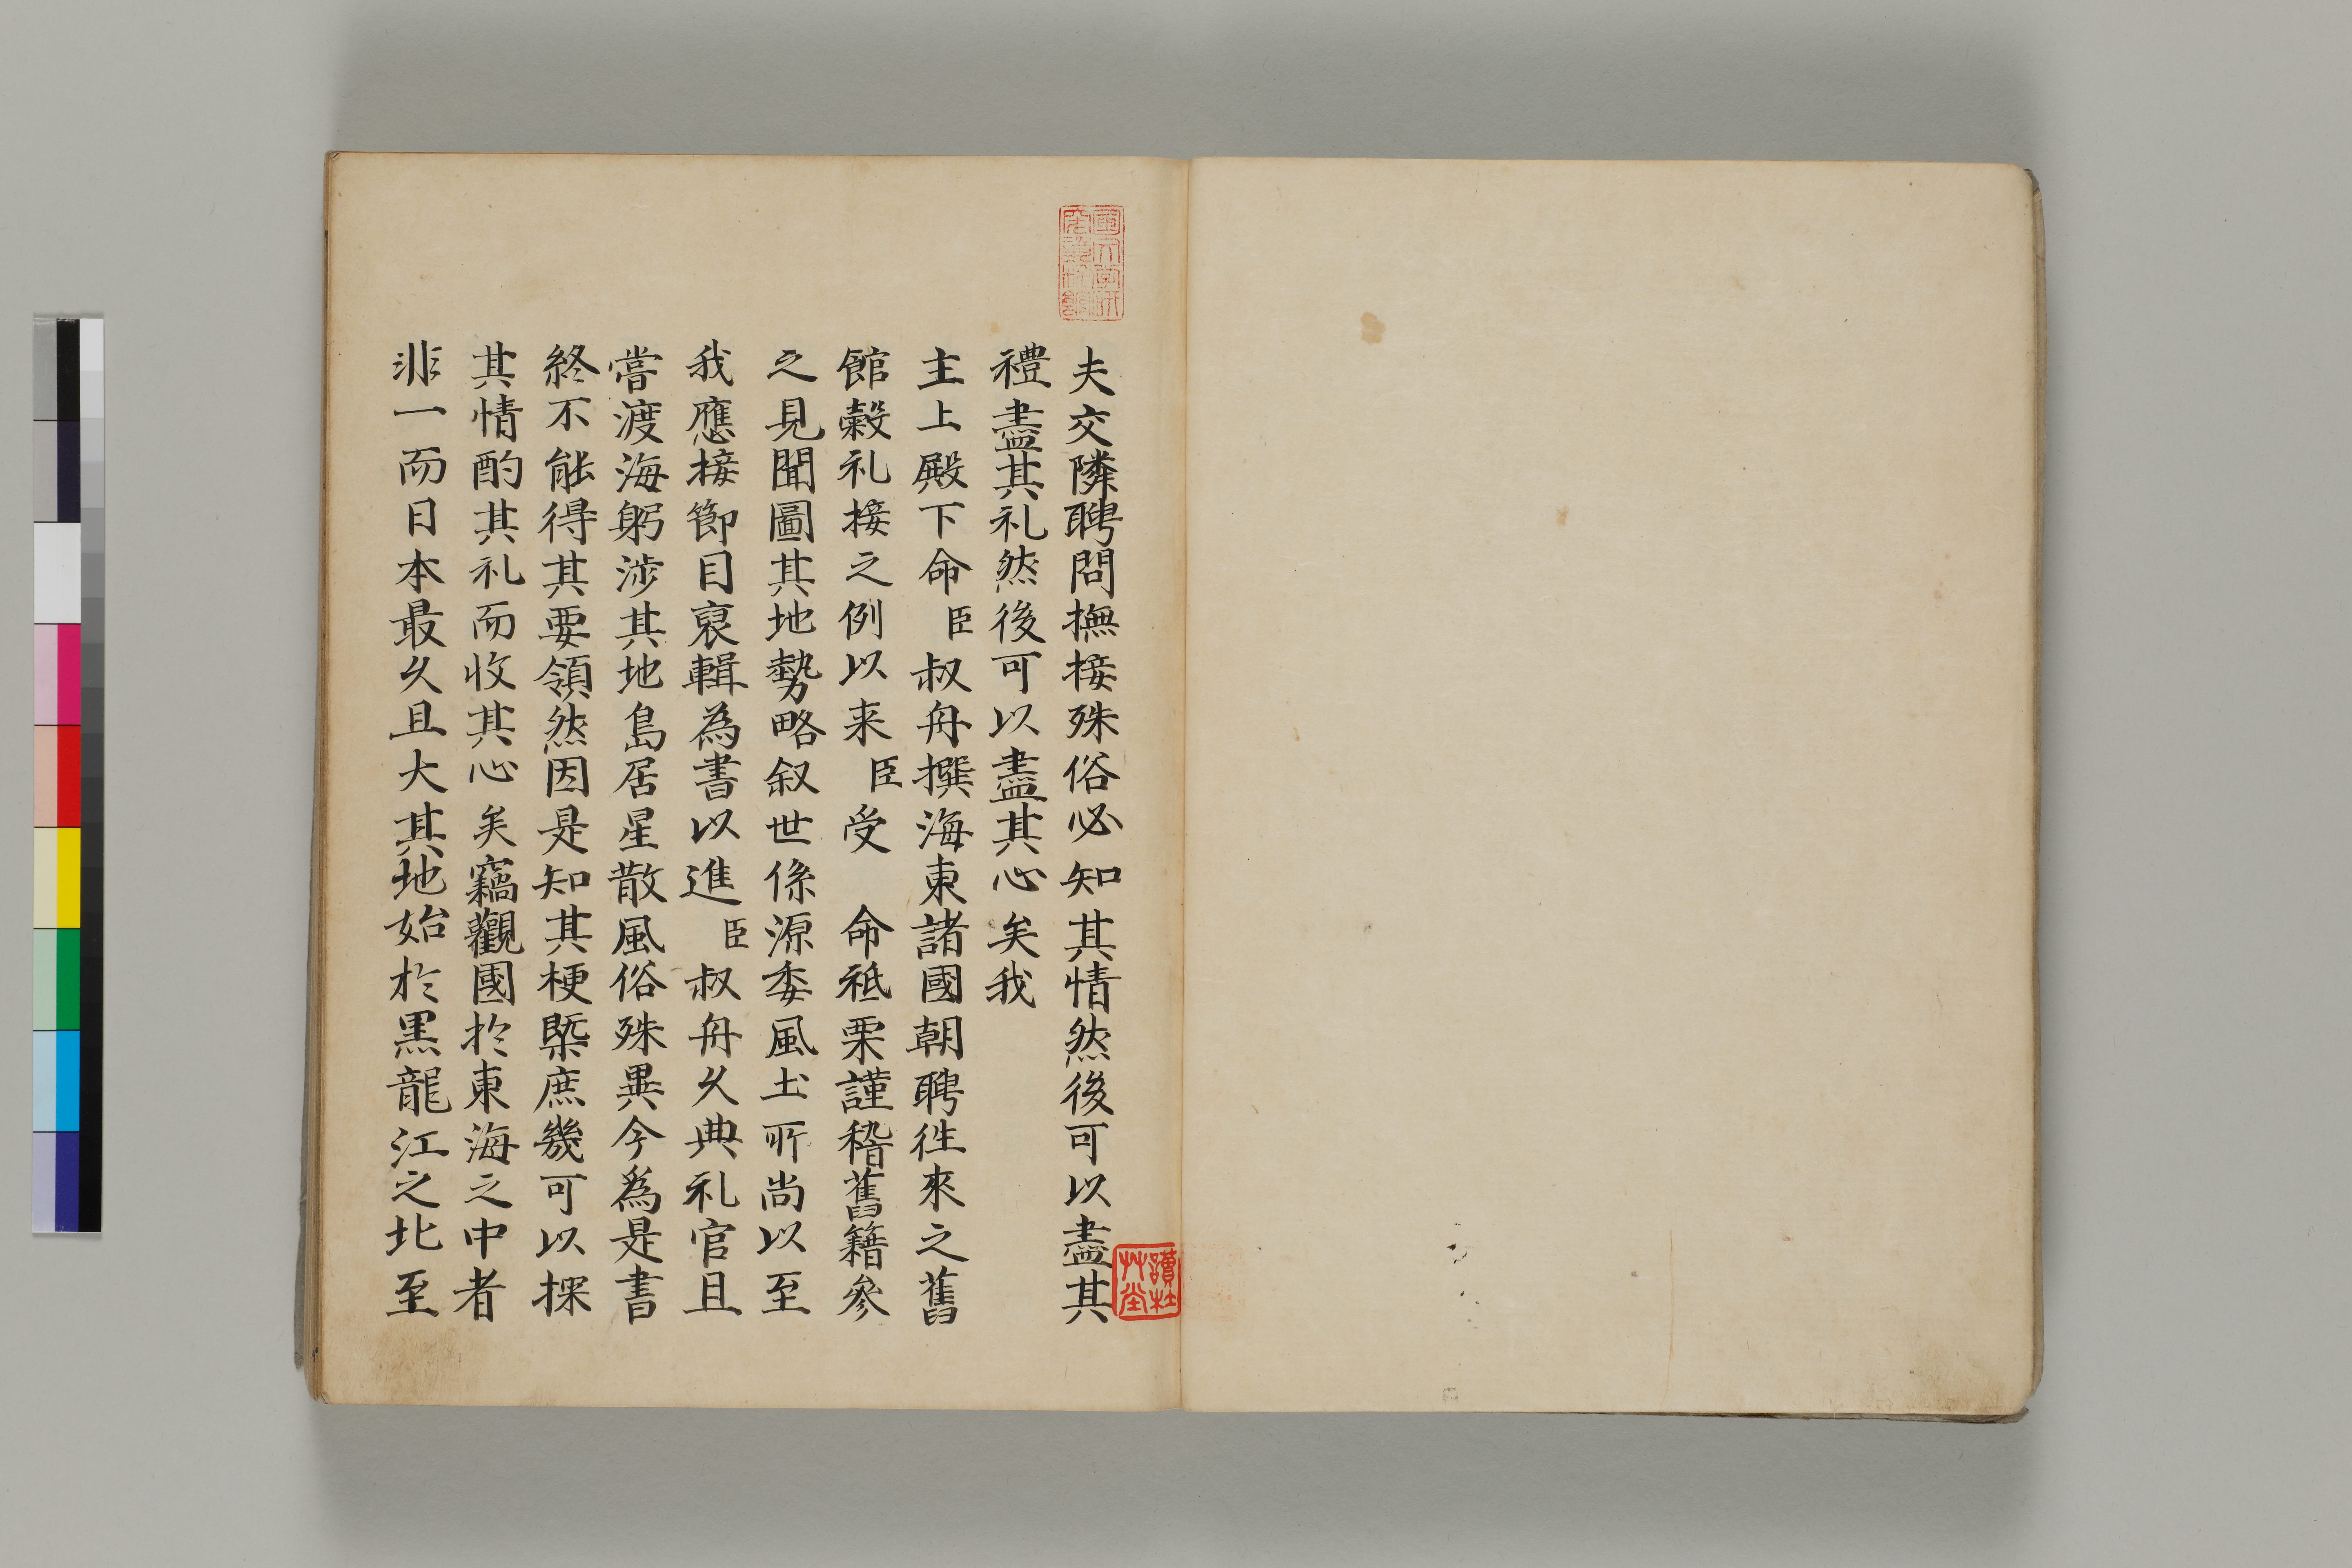 夫交隣聘問撫接殊俗必知其情然後可以盡其
禮盡其礼然後可以盡其心矣我
主上殿下命臣叔舟撰海東諸國朝聘徃來之舊
館穀礼接之例以来臣受 命祗栗謹稽舊籍參
之見聞圖其地勢略叙世係源委風土所尚以至
我應接節目裒輯為書以進臣叔舟久典礼官且
嘗渡海躬渉其地島居星散風俗殊異今為是書
終不能得其要領然因是知其梗槩庶幾可以探
其情酌其礼而收其心矣竊觀國於東海之中者
非一而日本最久且大其地始於黒龍江之北至
讀杜艸堂